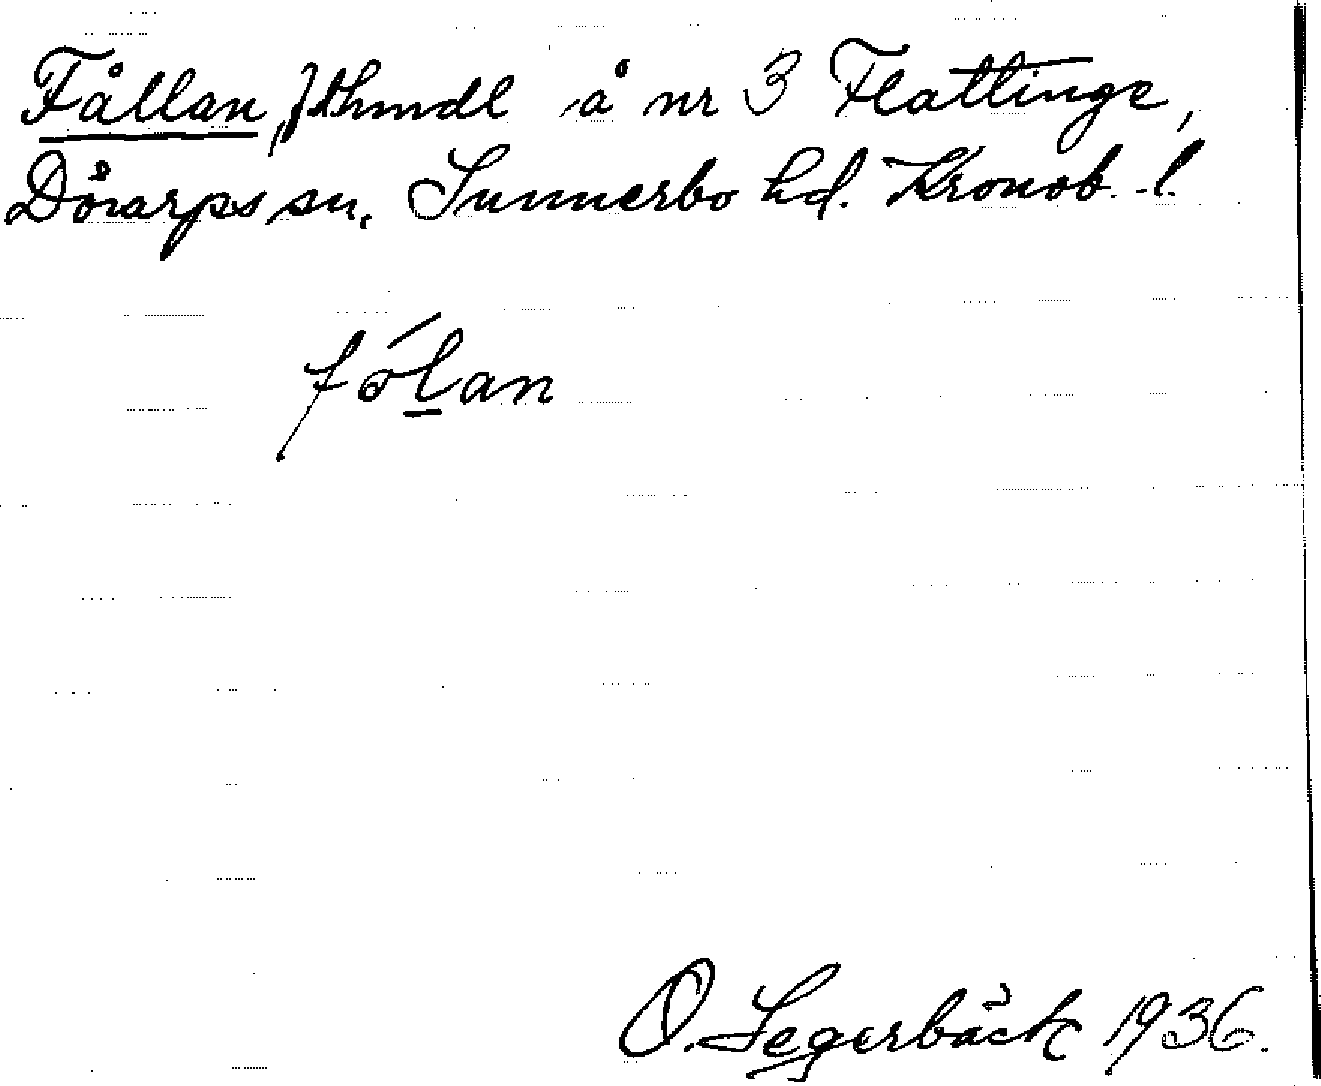 Fållan, åkmdl å nr 3 Flattinge,
Dörarps sn. Sunnerbo hd. Kronob. l.
fólan
O. Segerbäck 1936.